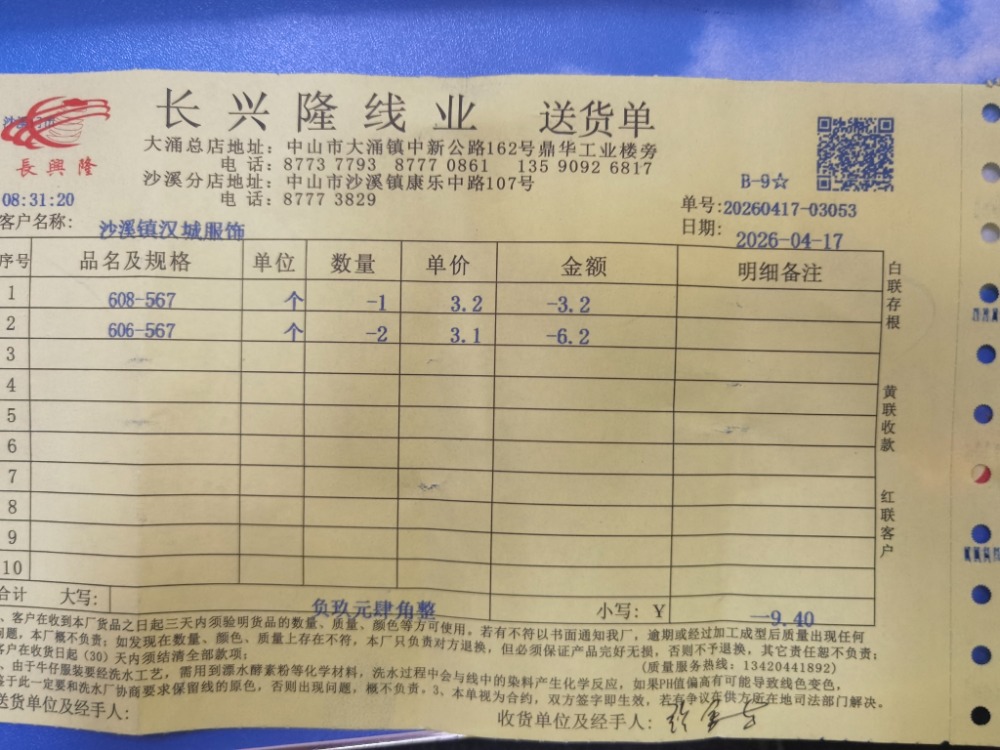 长兴隆线业 送货单
長興隆
大涌总店地址：中山市大涌镇中新公路162号鼎华工业楼旁
电 话：8773 7793 8777 0861 135 9092 6817
沙溪分店地址：中山市沙溪镇康乐中路107号
电 话：8777 3829
B-9☆
08:31:20
单号:20260417-03053
客户名称: 沙溪镇汉城服饰
日期: 2026-04-17
序号 品名及规格 单位 数量 单价 金额 明细备注
1 608-567 个 -1 3.2 -3.2
2 606-567 个 -2 3.1 -6.2
3
4
5
6
7
8
9
10
白联存根
黄联收款
红联客户
合计 大写: 负玖元肆角整 小写: ￥ -9.40
、客户在收到本厂货品之日起三天内须验明货品的数量、质量、颜色等方可使用。若有不符以书面通知我厂，逾期或经过加工成型后质量出现任何
问题，本厂概不负责；如发现在数量、颜色、质量上存在不符，本厂只负责对方退换，但必须保证产品完好无损，否则不予退换，其它责任恕不负责；
客户在收货日起（30）天内须结清全部款项； （质量服务热线：13420441892）
、由于牛仔服装要经洗水工艺，需用到漂水酵素粉等化学材料，洗水过程中会与线中的染料产生化学反应，如果PH值偏高有可能导致线色变色，
鉴于此一定要和洗水厂协商要求保留线的原色，否则出现问题，概不负责。3、本单视为合约，双方签字即生效，若有争议在供方所在地司法部门解决。
送货单位及经手人： 收货单位及经手人：